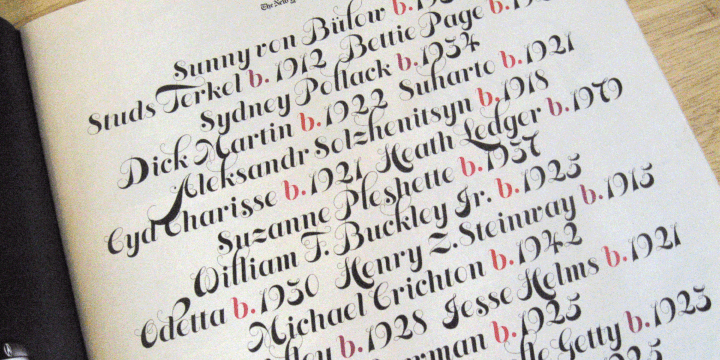 The New
Sunny von Bülow b.
Studs Terkel b. 1912 Bettie Page b.
Sydney Pollack b. 1934
Dick Martin b. 1922 Suharto b. 1921
Aleksandr Solzhenitsyn b. 1918
Cyd Charisse b. 1921 Heath Ledger b. 1979
Suzanne Pleshette b. 1937
William F. Buckley Jr. b. 1925
Odetta b. 1930 Henry Z. Steinway b. 1915
Michael Crichton b. 1942
b. 1928 Jesse Helms b. 1921
b. 1925
Getty b. 1923